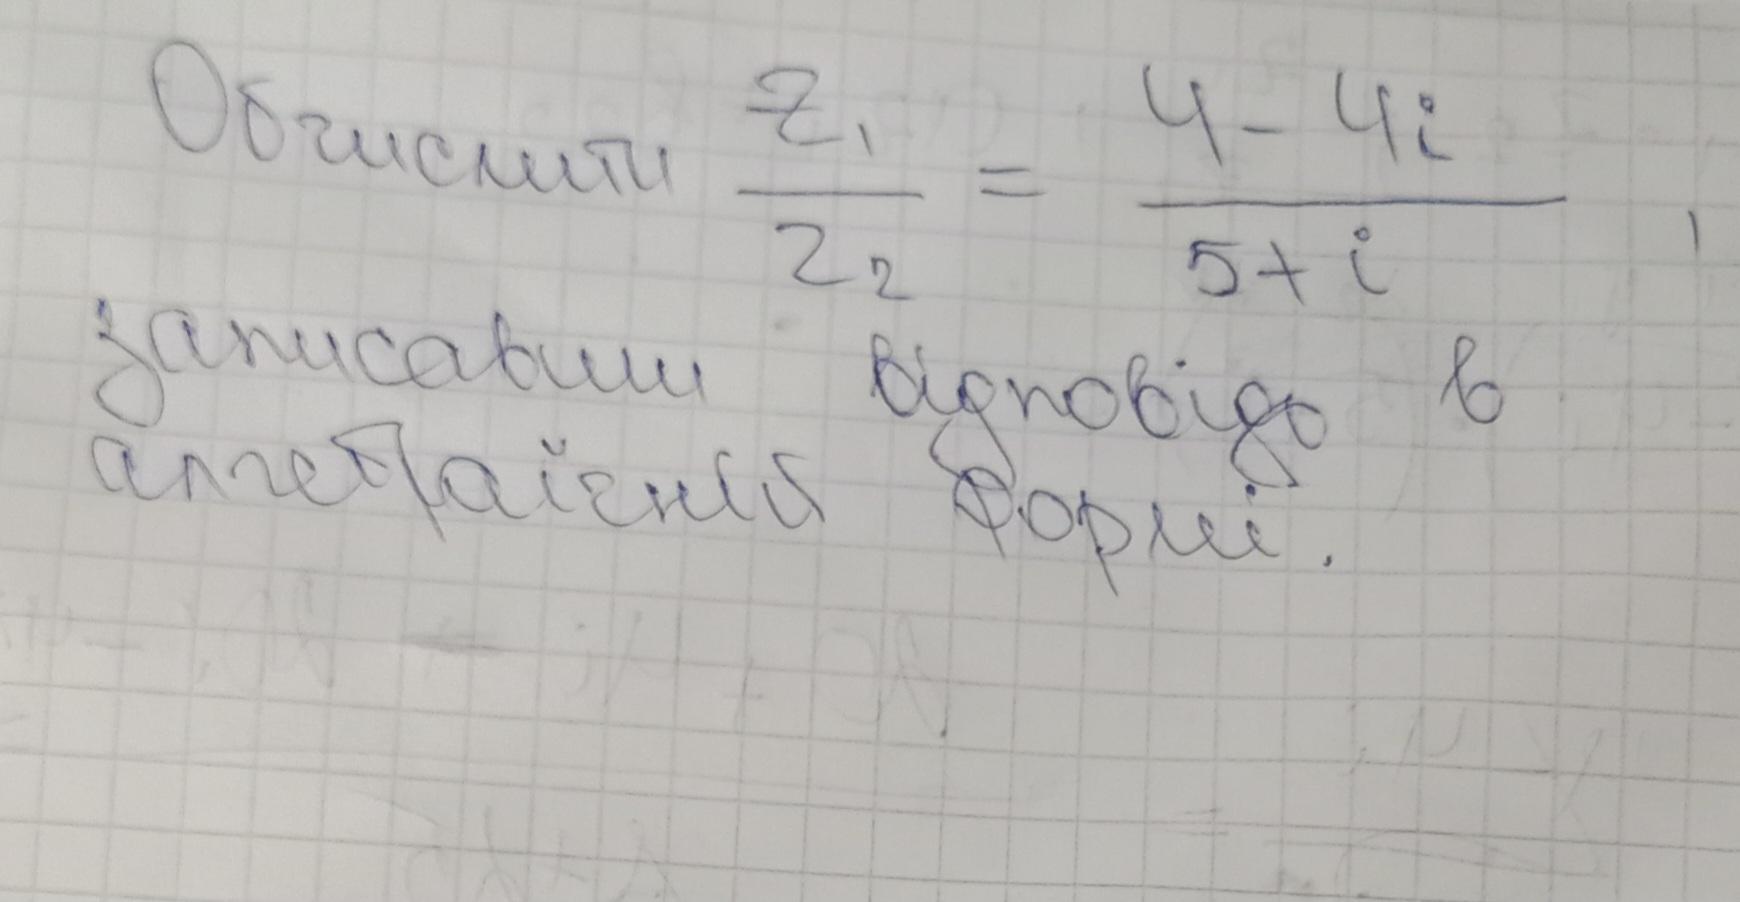 Обчислити z₁/z₂ = (4 - 4i)/(5 + i),
записавши відповідь в
алгебраїчній формі.